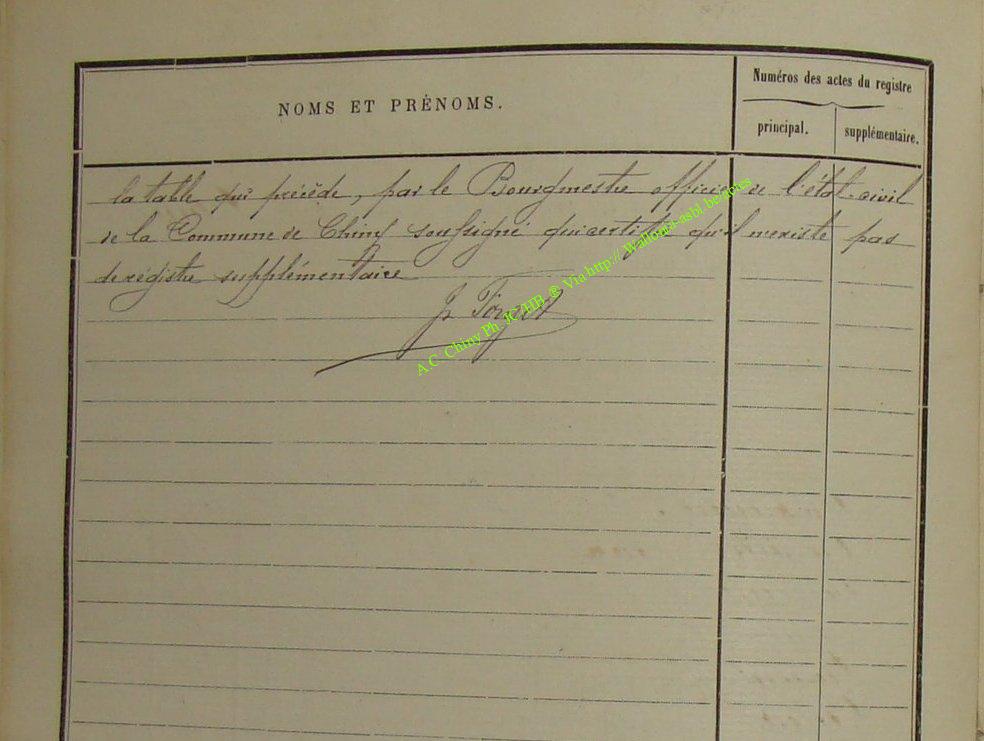 NOMS ET PRÉNOMS.
Numéros des actes du registre
principal.
supplémentaire.
la table qui précède, par le Bourgmestre officier de l'état-civil
de la Commune de Chiny soussigné qui certifie qu'il n'existe pas
de régistre supplémentaire
A.C. Chiny Ph. JC HB ® Via http://Wallonia-asbl.be/actes